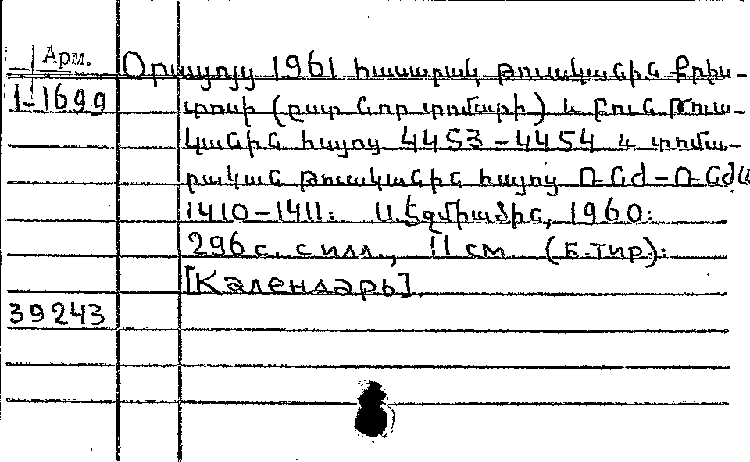 Арм.
1-1699
Օրացոյց 1961 հասարակ թուականին Քրիս-
տոսի (ըստ նոր տոմարի) և բուն թուա-
կանին հայոց 4453-4454 և տոմա-
րական թուականին հայոց ՌՆԺ-ՌՆԺԱ
1410-1411: Ս. Էջմիածին, 1960:
296 с. с илл., 11 см (Б.тир):
[Календарь].
39243